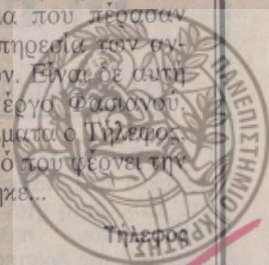 α που πέρασαν
πηρεσία των αν-
ων. Είναι δε αυτή
έργο Φασιανού.
ματα ο Τήλεφος,
ό που φέρνει την
ηκε...
Τήλεφος
ΠΑΝΕΠΙΣΤΗΜΙΟ ΚΡΗΤΗΣ